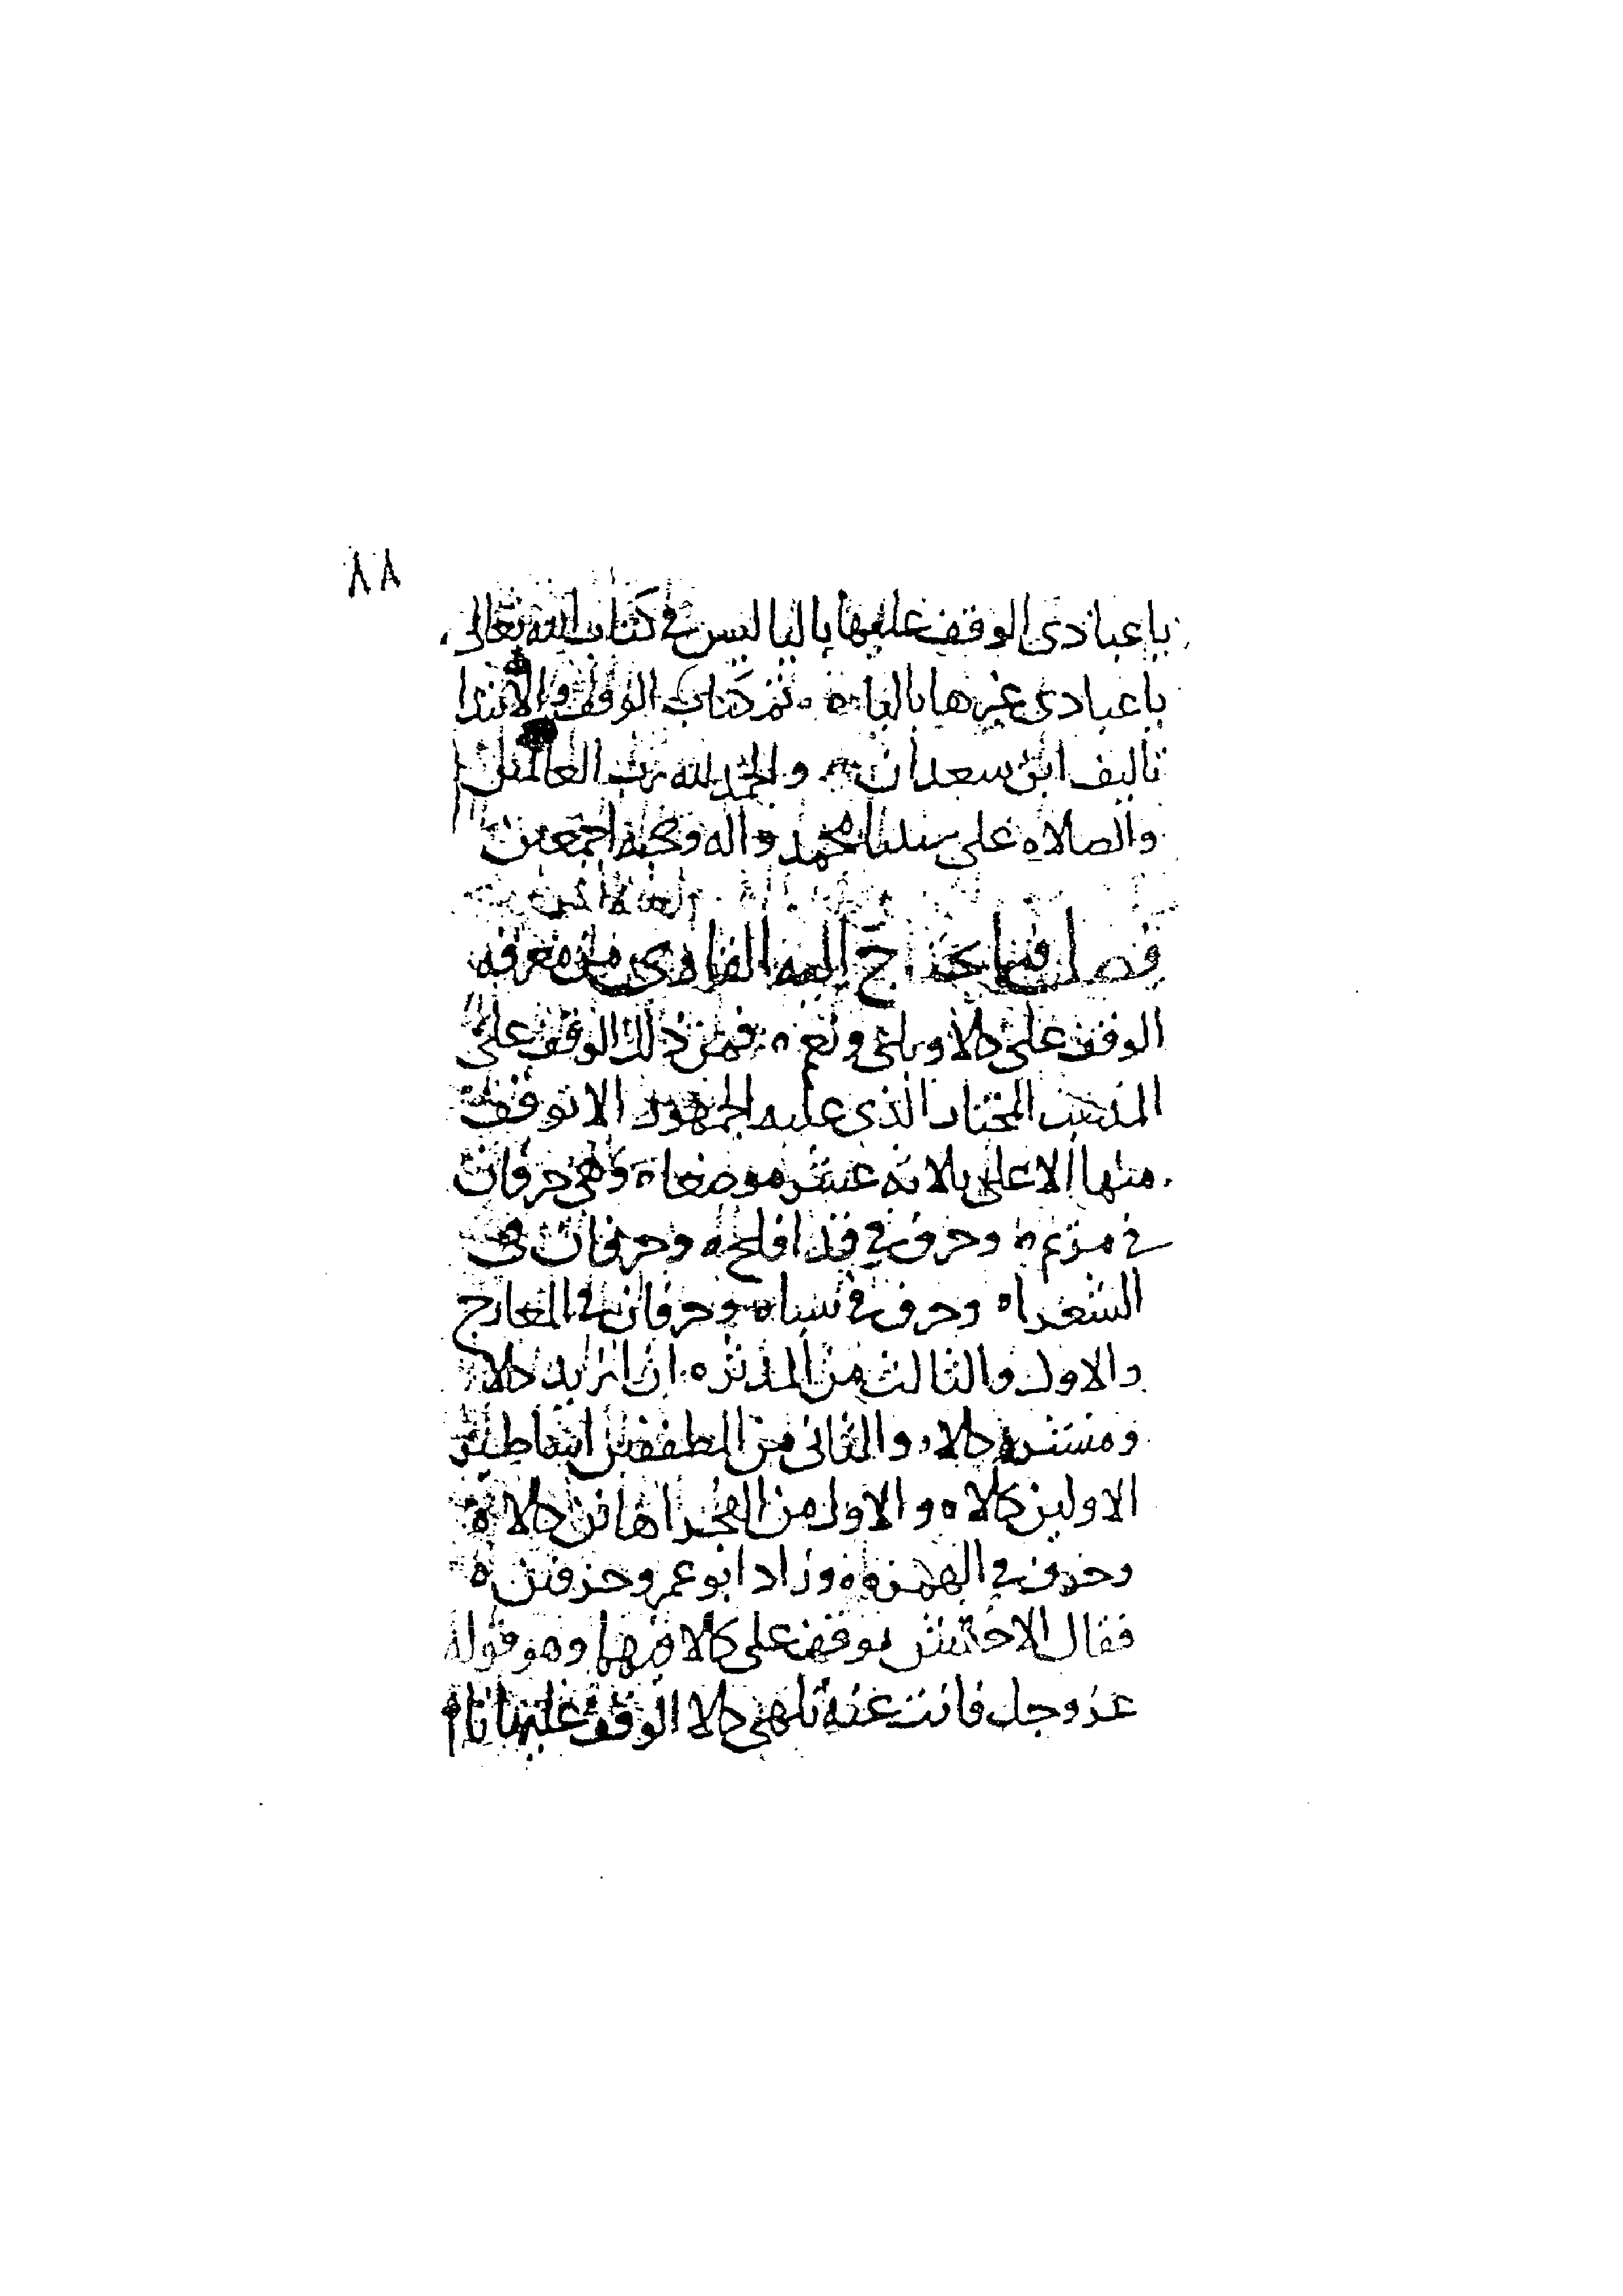 ٨٨
يا عبادى الوقف عليها باليا ليس فى كتاب الله تعالى
يا عبادى غيرها باليا ه تم كتاب الوقف والابتدا
تاليف ابن سعدان ه والحمد لله رب العالمين
والصلاه على سيدنا محمد واله وصحبه اجمعين
فصل فيما يحتاج اليه القارى من معرفه
الوقف على كلا وبلى ونعم ه فمن ذلك الوقف على
المذهب المختار الذى عليه الجمهور الا توقف
منها الا على ثلاثه عشر موضعا ه وهى حرفان
فى مريم ه وحرف فى قد افلح ه وحرفان فى
الشعرا ه وحرف فى سبا ه وحرفان فى المعارج
والاول والثالث من المدثر ه ان ازيد كلا
ومنشره كلا ه والثانى من المطففين اساطير
الاولين كلا ه والاول من الفجر اهانن كلا ه
وحرف فى الهمزه ه وزاد ابو عمرو حرفين ه
فقال الاخفش يوقف على كلا فيهما وهو قوله
عز وجل فانت عنه تلهى كلا الوقف عليها تام